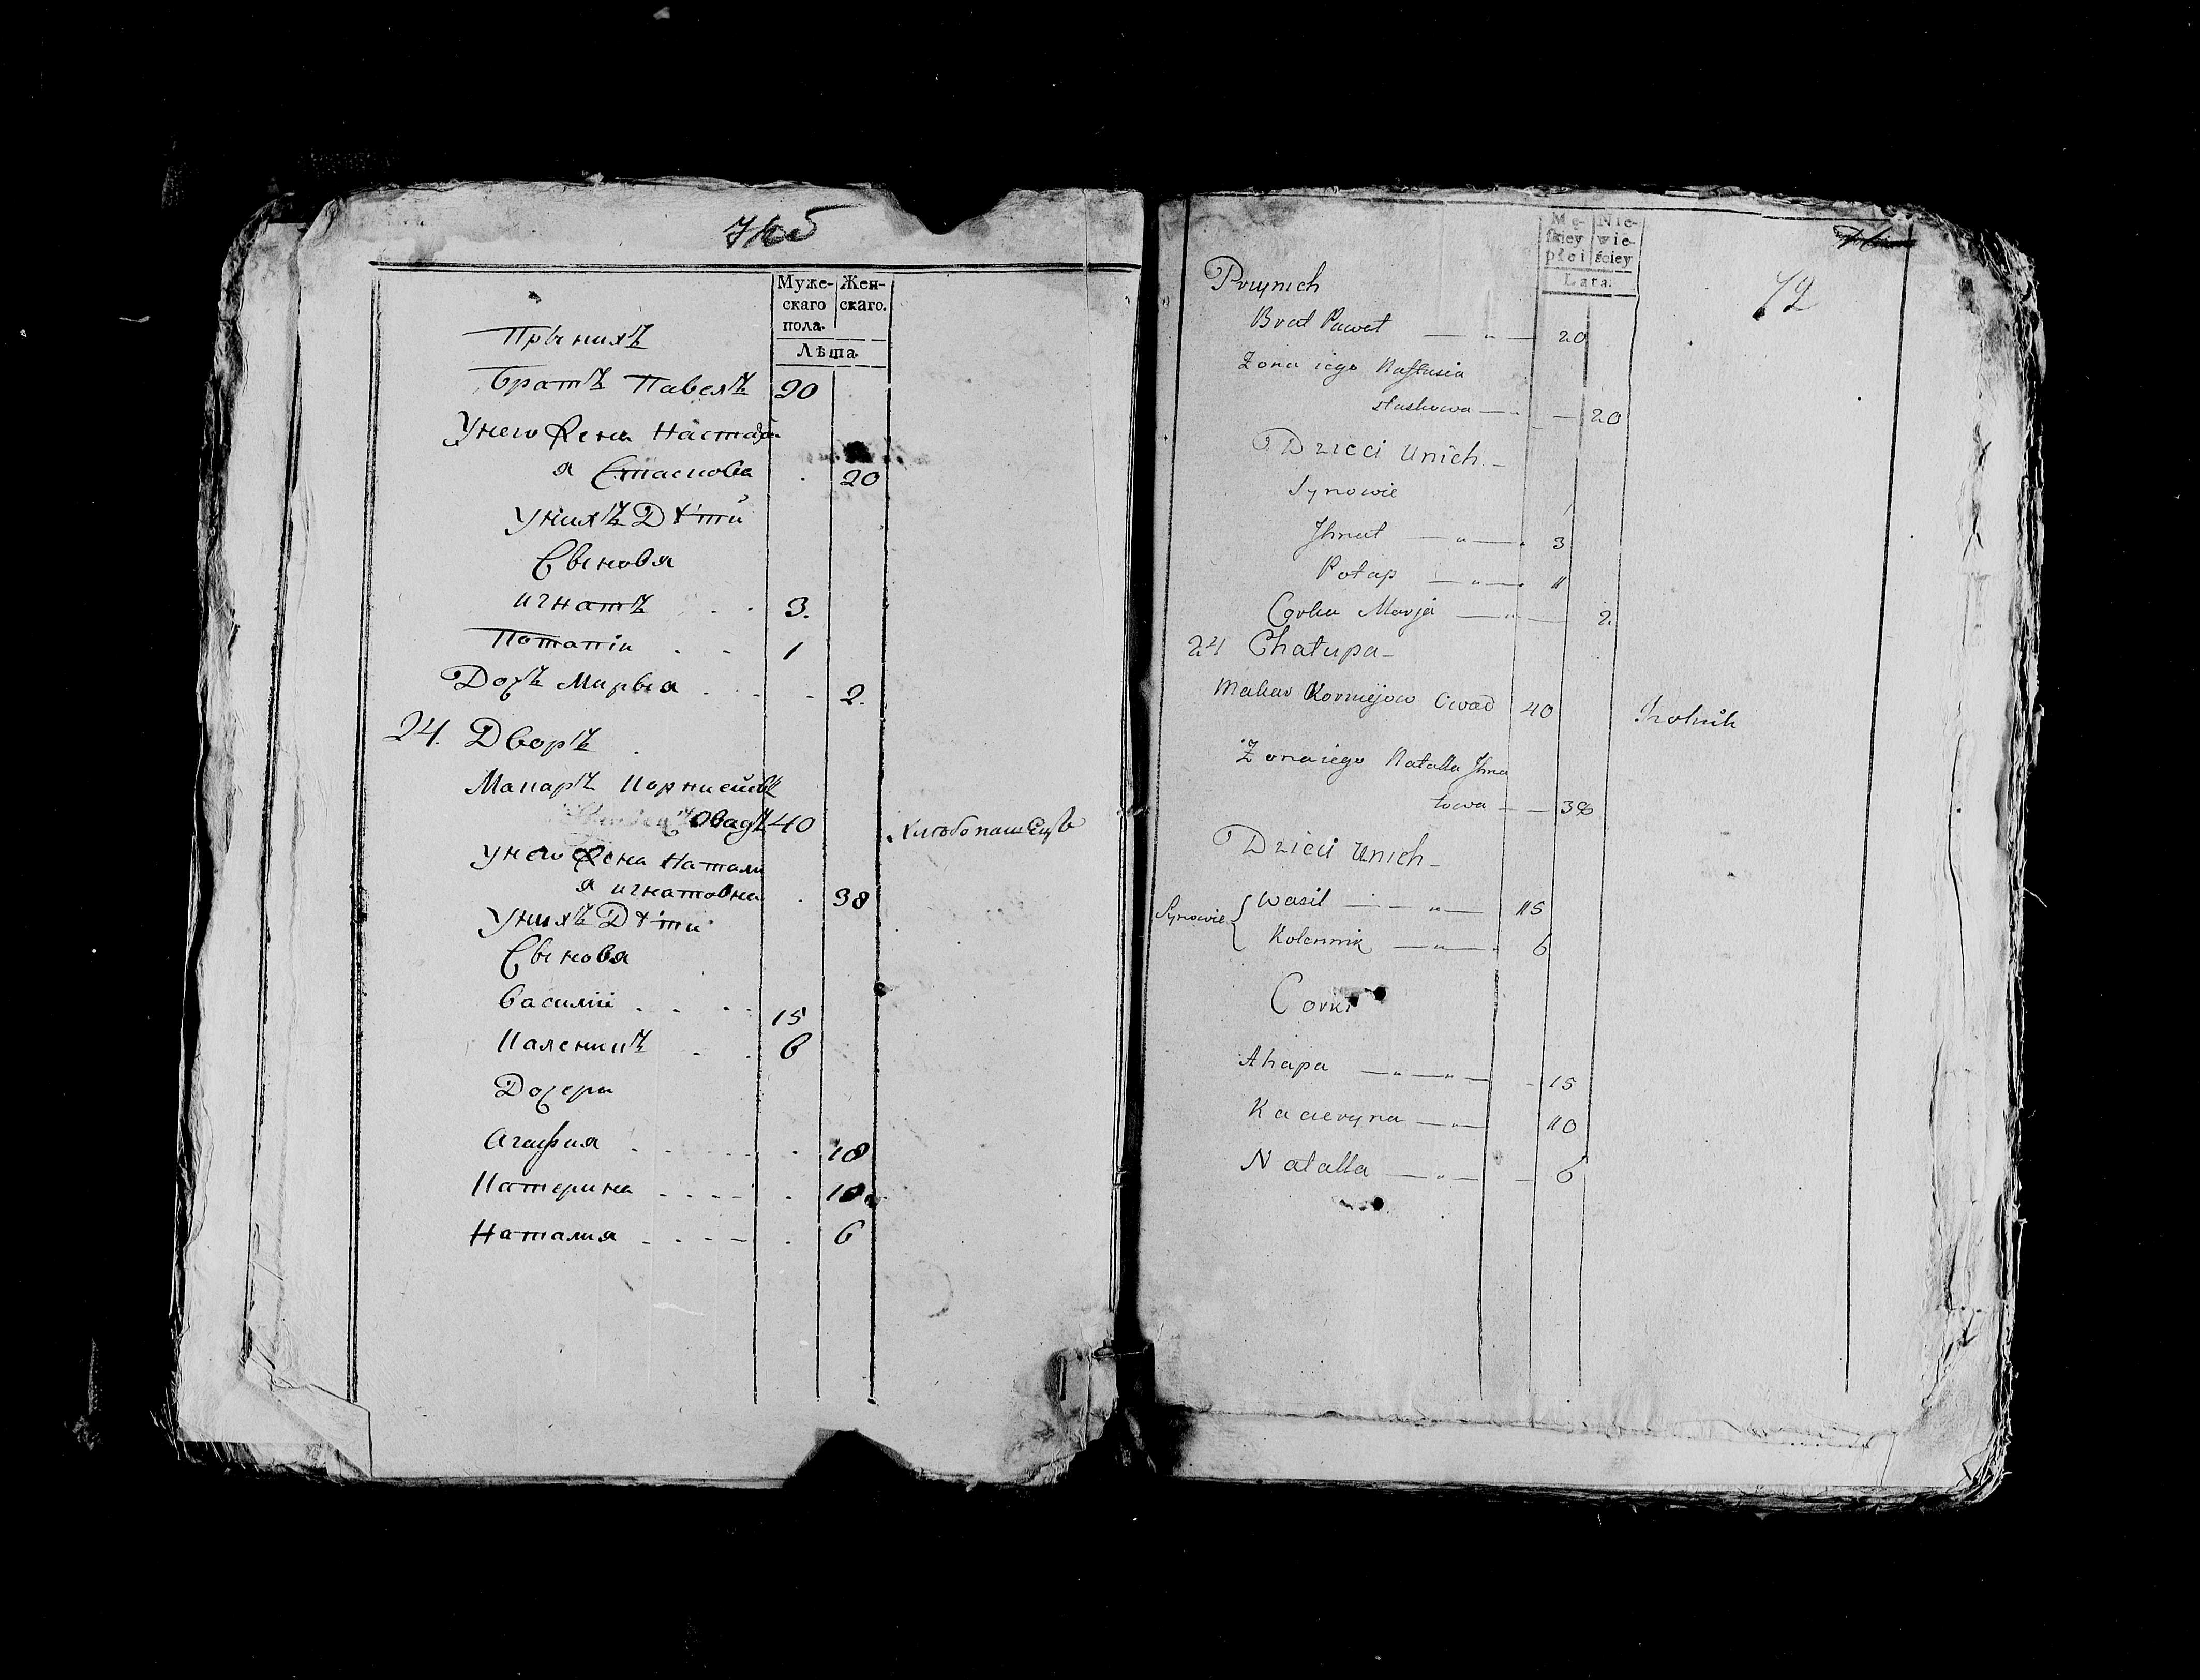 Муже-
скаго
пола.
Жен-
скаго.
Лѣта.
При нихъ
Братъ Павелъ 20
У него Жена Настаси
я Стаскова 20
У нихъ Дѣти
Сынове
Игнатъ . . 3.
Потапiи . . 1
Дочь Марья . . . 2.
24. Дворъ
Макаръ Корнпеiевъ
Овадъ 40 Хлебопашецъ
У него Жена Натали
я Игнатовна . 38
У нихъ Дѣти
Сынове
Василiй . . . . 15
Каленикъ . . 6
Дочери
Агафия . . . . . . 18
Катерина . . . . . 10
Наталия . . . . . 6
Mę-
skiey
płci
Nie-
wie-
ściey
Lata.
72
Przynich
Brat Paweł — „ — 20
Zona iego Nastusia
Staskowa — „ — 20
Dzieci Unich —
Synowie
Jhnat — „ — 3
Potap — „ — 1
Corka Marja — „ — 2
24 Chałupa —
Makar Korniejow Owad 40 Rolnik
Zona iego Natalla Jhna
towa — — 38
Dzieci Unich —
Synowie { Wasil — — „ — 15
Kolennik — „ — 6
Corki
Ahapa — „ — „ — 15
Kacieryna — „ — 10
Natalla — „ — — 6